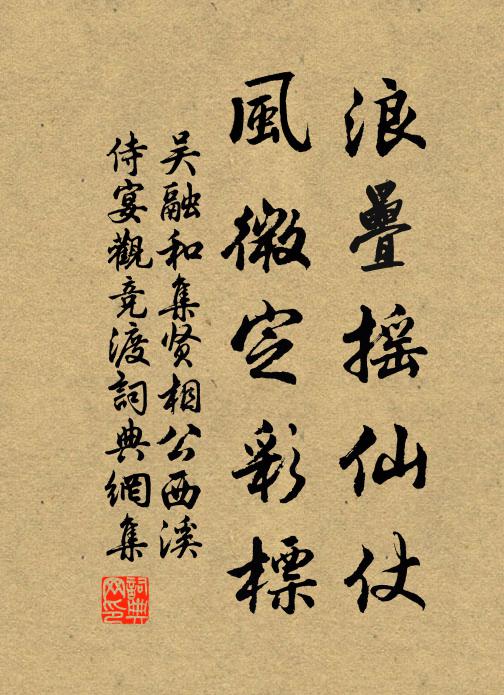 浪疊摇仙仗
風微定彩標
吴融和集贤相公西溪
侍宴觀竞渡詞典網集
詞典网印